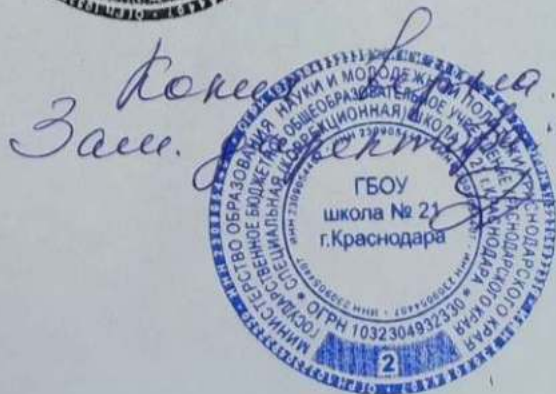 Копия верна.
Зам. директора
МИНИСТЕРСТВО ОБРАЗОВАНИЯ, НАУКИ И МОЛОДЕЖНОЙ ПОЛИТИКИ КРАСНОДАРСКОГО КРАЯ
ГОСУДАРСТВЕННОЕ БЮДЖЕТНОЕ ОБЩЕОБРАЗОВАТЕЛЬНОЕ УЧРЕЖДЕНИЕ КРАСНОДАРСКОГО КРАЯ
СПЕЦИАЛЬНАЯ (КОРРЕКЦИОННАЯ) ШКОЛА № 21 г. КРАСНОДАРА
* ОГРН 1032304932330 *
ИНН 2309054407
ГБОУ
школа № 21
г.Краснодара
2